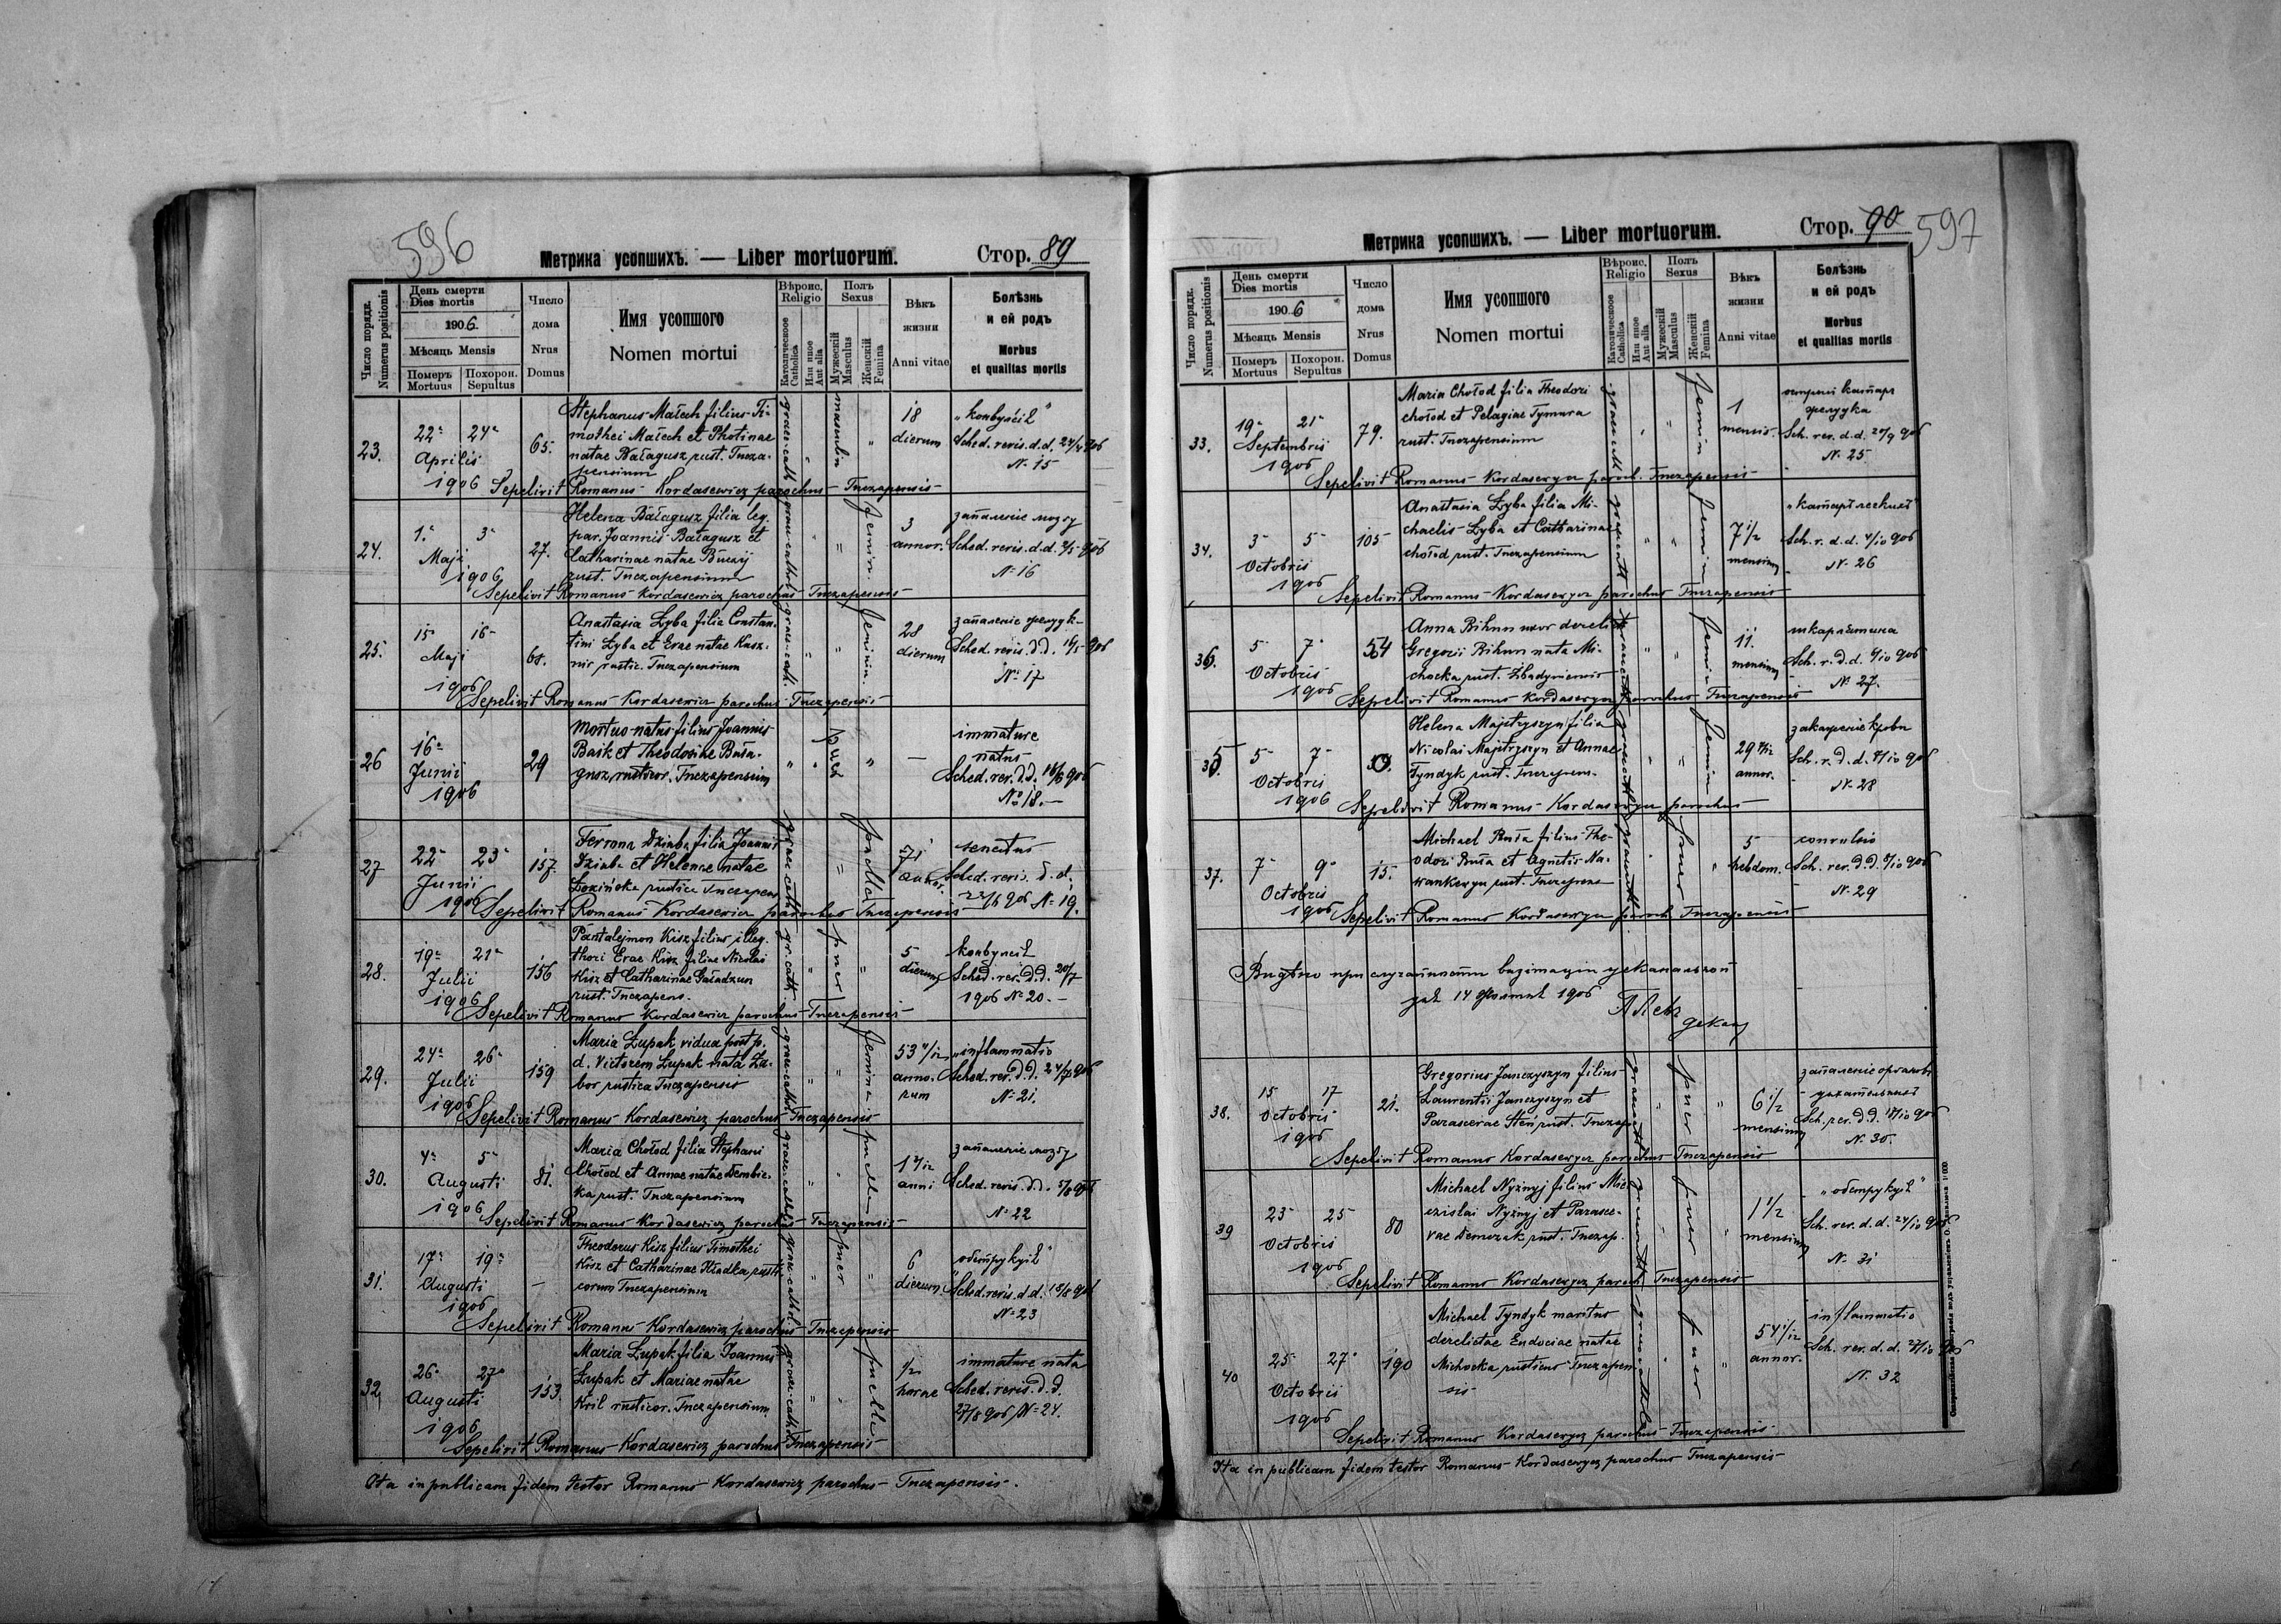 596
Метрика усопшихъ. — Liber mortuorum.
Стор. 89
Число порядк.
Numerus positionis
День смерти
Dies mortis
1906.
Мѣсяць Mensis
Померъ
Mortuus
Похорон.
Sepultus
Число
дома
Nrus
Domus
Имя усопшого
Nomen mortui
Вѣроис.
Religio
Католическое
Catholica
Или иное
Aut alia
Полъ
Sexus
Мужескій
Masculus
Женскій
Femina
Вѣкъ
жизни
Anni vitae
Болѣзнь
и ей родъ
Morbus
et qualitas mortis
23.
22 24
Aprilis
1906
65.
Stephanus Małech filius Ti-
mothei Małech et Photinae
natae Bałagusz rust. Tneza-
pensium
graec. cath.
masculin
18
dierum
„конвульсіѣ"
Sched. revis. d.d. 24/4 906
N. 15
Sepelivit Romanus Kordasewicz parochus Tnezapensis
24.
1. 3
Maji
1906
27.
Helena Bałagusz filia leg.
par. Joannis Bałagusz et
Catharinae natae
rust. Tnezapensium
graec. cathol.
femin.
3
annor.
запаленіе мозгу
Sched. revis. d.d. 2/5 906
N. 16
Sepelivit Romanus Kordasewicz parochus Tnezapensis
25.
15 16
Maji
1906
68.
Anastasia Zyba filia Constan-
tini Zyba et Evae natae Kusz-
nir rustic. Tnezapensium
graec. cath.
femin.
28
dierum
запаленіе
Sched. revis. d.d. 16/5 906
N. 17
Sepelivit Romanus Kordasewicz parochus Tnezapensis
26
16
Junii
1906
29
Mortuo-natus filius Joannis
Baik et Theodosiae Bała-
gusz, rusticor. Tnezapensium
puer
—
immature
natus
Sched. rev. d.d. 16/6 906
No 18.
27
22 23
Junii
1906
157.
Ferrona Dziuba filia Joannis
Dziuba et Helenae natae
Łozińska rustica Tnezapens
graec. cath.
puella
71
annor.
senectus
Sched. revis. d.d.
22/6 906 N. 19.
Sepelivit Romanus Kordasewicz parochus Tnezapensis
28.
19 21
Julii
1906
156
Pantalejmon Kisz filius illeg.
thori Evae Kisz filiae Nicolai
Kisz et Catharinae Gaładzun
rust. Tnezapens.
gr. cath.
puer
5
dierum
конвульсіѣ
Sched. rev. d.d. 20/7
1906 N. 20.
Sepelivit Romanus Kordasewicz parochus Tnezapensis
29.
24 26
Julii
1906
159
Maria Łupak vidua post p.
d. Victorem Łupak nata Za-
bor rustica Tnezapensis
graec. cathol.
femina
53
anno-
rum
„inflammatio
Sched. rev. d.d. 24/7 906
N. 21.
Sepelivit Romanus Kordasewicz parochus Tnezapensis
30.
4 5
Augusti
1906
81.
Maria Chołod filia Stephani
Chołod et Annae natae Dembic-
ka rust. Tnezapensium
graec. cathol.
puella
1
anni
запаленіе мозгу
Sched. revis. d.d. 5/8 906
N. 22
Sepelivit Romanus Kordasewicz parochus Tnezapensis
31.
17 19
Augusti
1906
—
Theodorus Kisz filius Timothei
Kisz et Catharinae Hładka rusti-
corum Tnezapensium
graec. cathol.
puer
6
dierum
обструкціѣ
Sched. revis. d.d. 18/8 906
N. 23
Sepelivit Romanus Kordasewicz parochus Tnezapensis
32.
26 27
Augusti
1906
153.
Maria Łupak filia Joannis
Łupak et Mariae natae
Kril rusticor. Tnezapensium
graec. cathol.
puella
1/2
horae
immature nata
Sched. revis. d.d.
27/8 906 N. 24.
Sepelivit Romanus Kordasewicz parochus Tnezapensis
Ita in publicam fidem testor Romanus Kordasewicz parochus Tnezapensis.
597
Метрика усопшихъ. — Liber mortuorum.
Стор. 90
Число порядк.
Numerus positionis
День смерти
Dies mortis
1906
Мѣсяць Mensis
Померъ
Mortuus
Похорон.
Sepultus
Число
дома
Nrus
Domus
Имя усопшого
Nomen mortui
Вѣроис.
Religio
Католическое
Catholica
Или иное
Aut alia
Полъ
Sexus
Мужескій
Masculus
Женскій
Femina
Вѣкъ
жизни
Anni vitae
Болѣзнь
и ей родъ
Morbus
et qualitas mortis
33.
19 21
Septembris
1906
79.
Maria Chołod filia Theodori
Chołod et Pelagiae Tymura
rust. Tnezapensium
graec. cath.
femin
1
mensis.
катар
Sch. rev. d.d. 20/9 906
N. 25
Sepelivit Romanus Kordasewycz paroch. Tnezapensis
34.
3 5
Octobris
1906
105
Anastasia Zyba filia Mi-
chaelis Zyba et Catharinae
Chołod rust. Tnezapensium
graec. cath
femin
7 1/2
mensium
„катаръ легкихъ"
Sch. r. d.d. 4/10 906
N. 26
Sepelivit Romanus Kordasewycz parochus Tnezapensis
36.
5 7
Octobris
1906
54
Anna Bihun uxor derelict
Gregorii Bihun nata Mi-
chocka rust.
femin
11.
mensium
шкарлятина
Sch. r. d.d. 6/10 906
N. 27.
Sepelivit Romanus Kordasewycz parochus Tnezapensis
35.
5 7
Octobris
1906
Helena Majstryszyn filia
Nicolai Majstryszyn et Annae
Tyndyk rust. Tnezapens.
femin
29
annor.
закаженіе крови
Sch. r. d.d. 6/10 906
N. 28
Sepelivit Romanus Kordasewycz parochus
37.
7 9
Octobris
1906
15.
Michael Buła filius The-
odori Buła et Agnetis Na-
wankewycz rust. Tnezapens
puer
5
hebdom.
convulsio
Sch. rev. d.d. 8/10 906
N. 29
Sepelivit Romanus Kordasewycz paroch. Tnezapensis
Видѣно при случайности визитаціи деканальной
14 1906
декан
38.
15 17
Octobris
1906
21.
Gregorius Janczyszyn filius
Laurentii Janczyszyn et
Parascevae Steń rust. Tnezap
puer
6 1/2
mensium
запаленіе органовъ
дыхательныхъ
Sch. rev. d.d. 906
N. 30.
Sepelivit Romanus Kordasewycz parochus Tnezapensis
39
23 25
Octobris
1906
80
Michael Nyżnyj filius Mie-
czislai Nyżnyj et Parasce-
vae Demczak rust. Tnezap.
puer
1 1/2
mensium
„обструкціѣ"
Sch. rev. d.d. 24/10 906
N. 31
Sepelivit Romanus Kordasewycz paroch. Tnezapensis
40
25 27
Octobris
1906
190
Michael Tyndyk maritus
derelictae Eudociae natae
Michocka rusticus Tnezapen-
sis
puer
54
annor.
inflammatio
Sch. rev. d.d. 906
N. 32
Sepelivit Romanus Kordasewycz parochus Tnezapensis
Ita in publicam fidem testor Romanus Kordasewycz parochus Tnezapensis